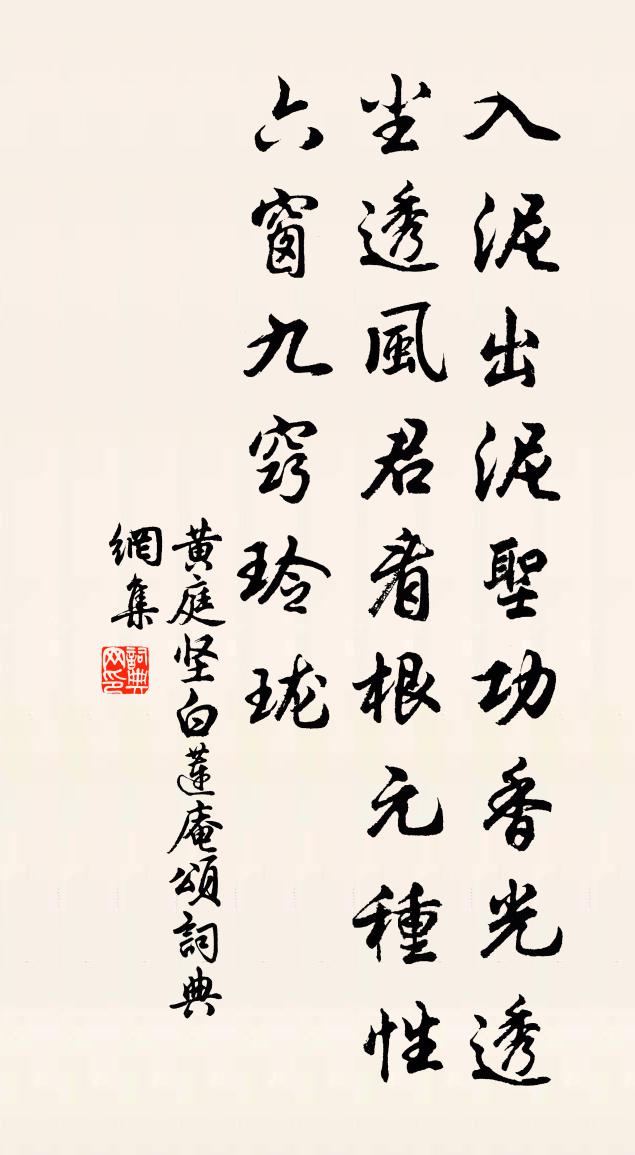 入泥出泥聖功香光透
尘透風君看根元種性
六窗九窍玲珑
黄庭坚白蓮庵頌詞典
網集
詞典
网印